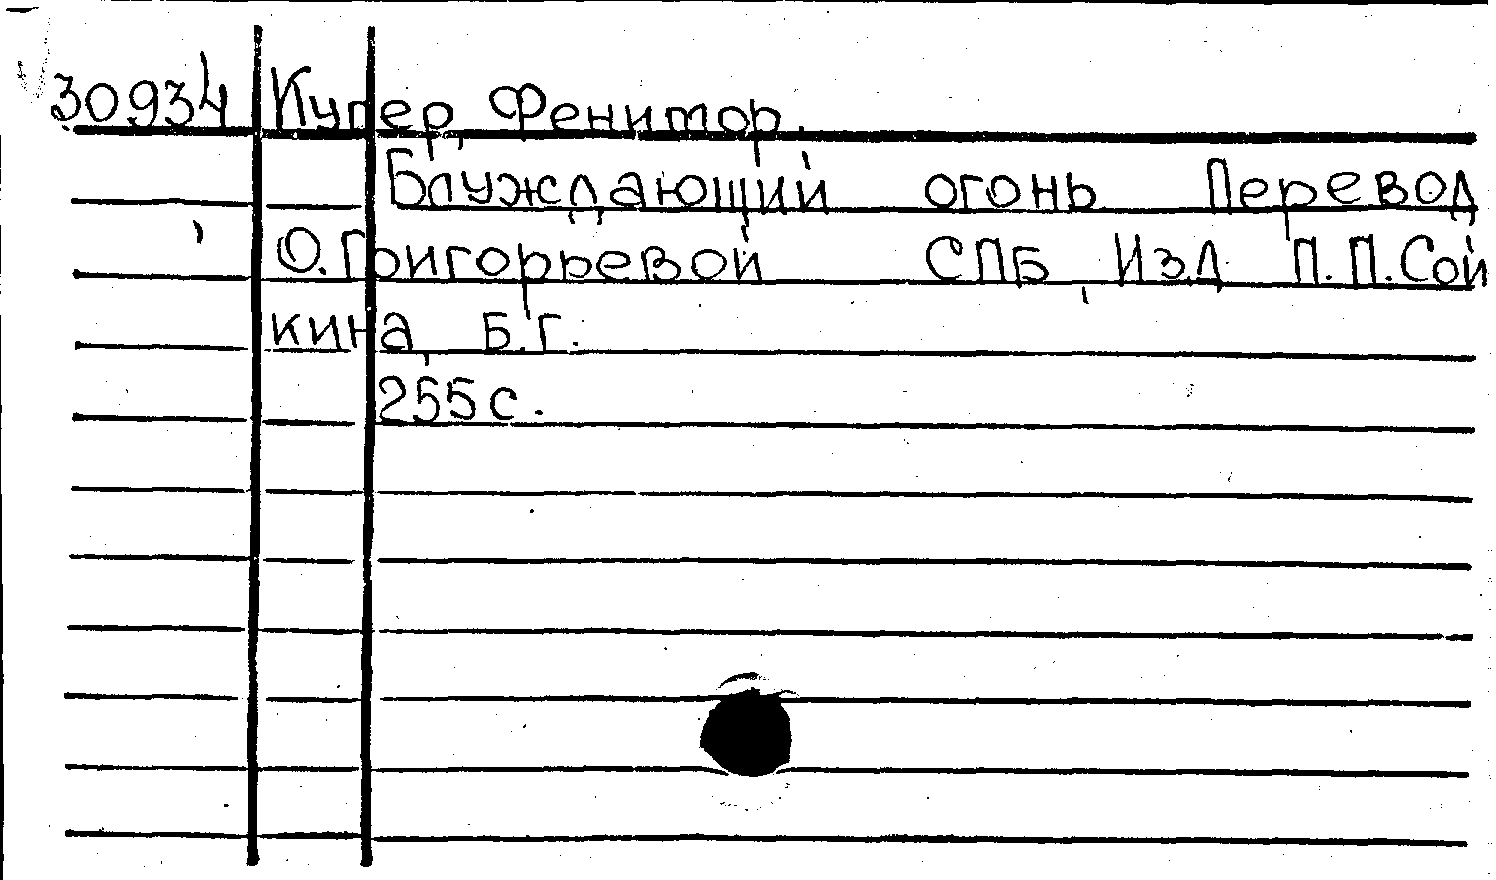 30934 Купер, Фенимор.
Блуждающий огонь Перевод
О.Григорьевой СПБ, Изд П.П.Сой
кина, Б.Г.
255 с.